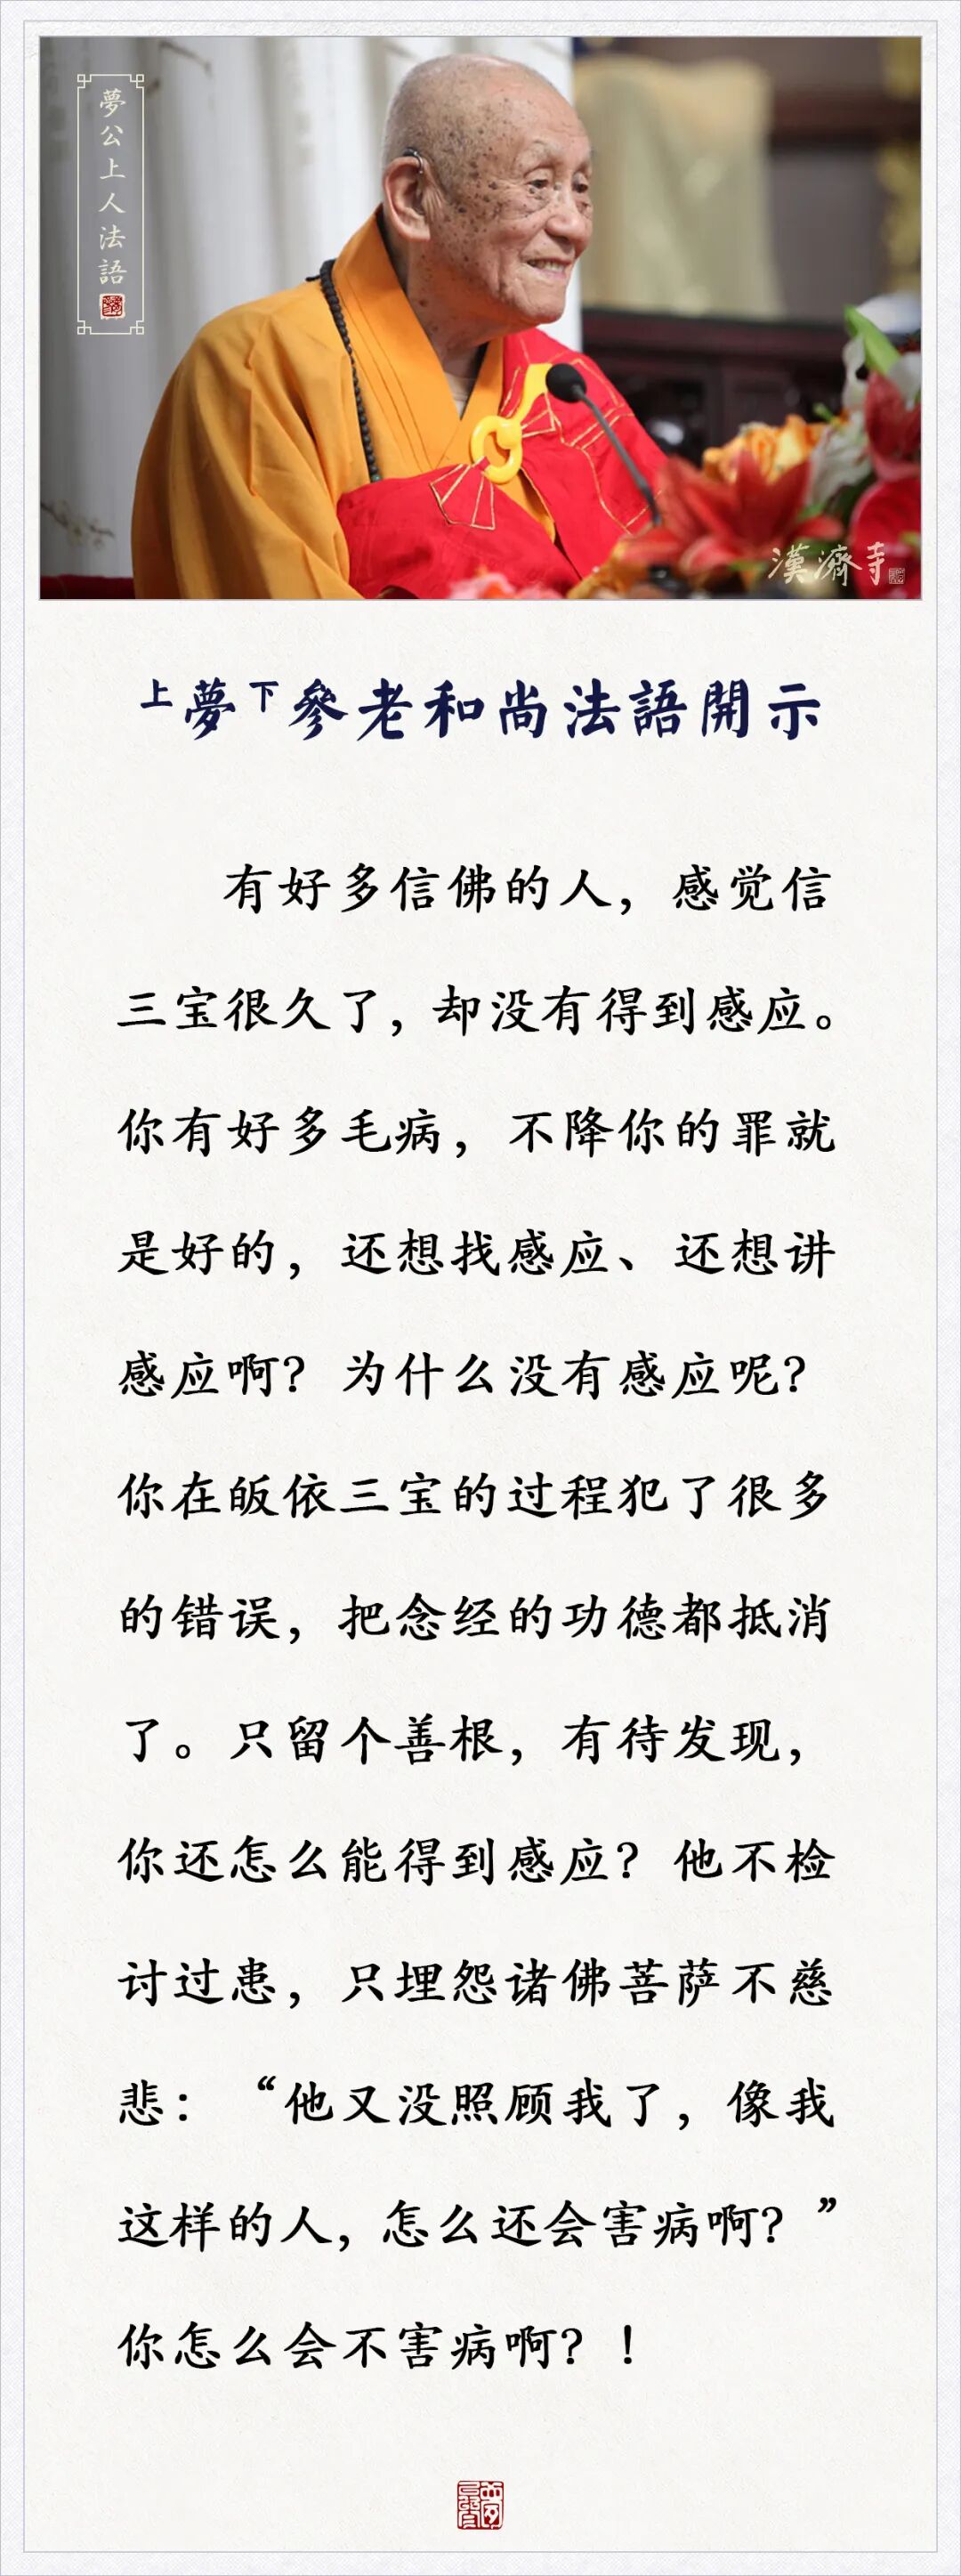 夢公上人法語
漢濟寺
上夢下參老和尚法語開示
有好多信佛的人，感觉信
三宝很久了，却没有得到感应。
你有好多毛病，不降你的罪就
是好的，还想找感应、还想讲
感应啊？为什么没有感应呢？
你在皈依三宝的过程犯了很多
的错误，把念经的功德都抵消
了。只留个善根，有待发现，
你还怎么能得到感应？他不检
讨过患，只埋怨诸佛菩萨不慈
悲：“他又没照顾我了，像我
这样的人，怎么还会害病啊？”
你怎么会不害病啊？！